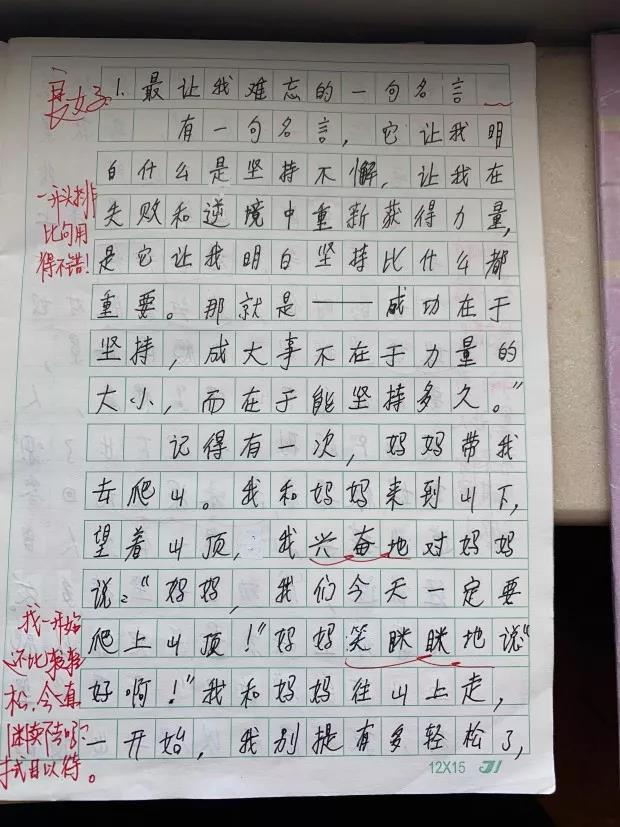 良好
1. 最让我难忘的一句名言
有一句名言，它让我明
白什么是坚持不懈，让我在
失败和逆境中重新获得力量，
是它让我明白坚持比什么都
重要。那就是——成功在于
坚持，成大事不在于力量的
大小，而在于能坚持多久。”
记得有一次，妈妈带我
去爬山。我和妈妈来到山下，
望着山顶，我兴奋地对妈妈
说：“妈妈，我们今天一定要
爬上山顶！”妈妈笑眯眯地说“
好啊！”我和妈妈往山上走，
一开始，我别提有多轻松了，
一开头排
比句用
得不错！
我一开始
还比较轻
松，今真
拭目以待。
12X15